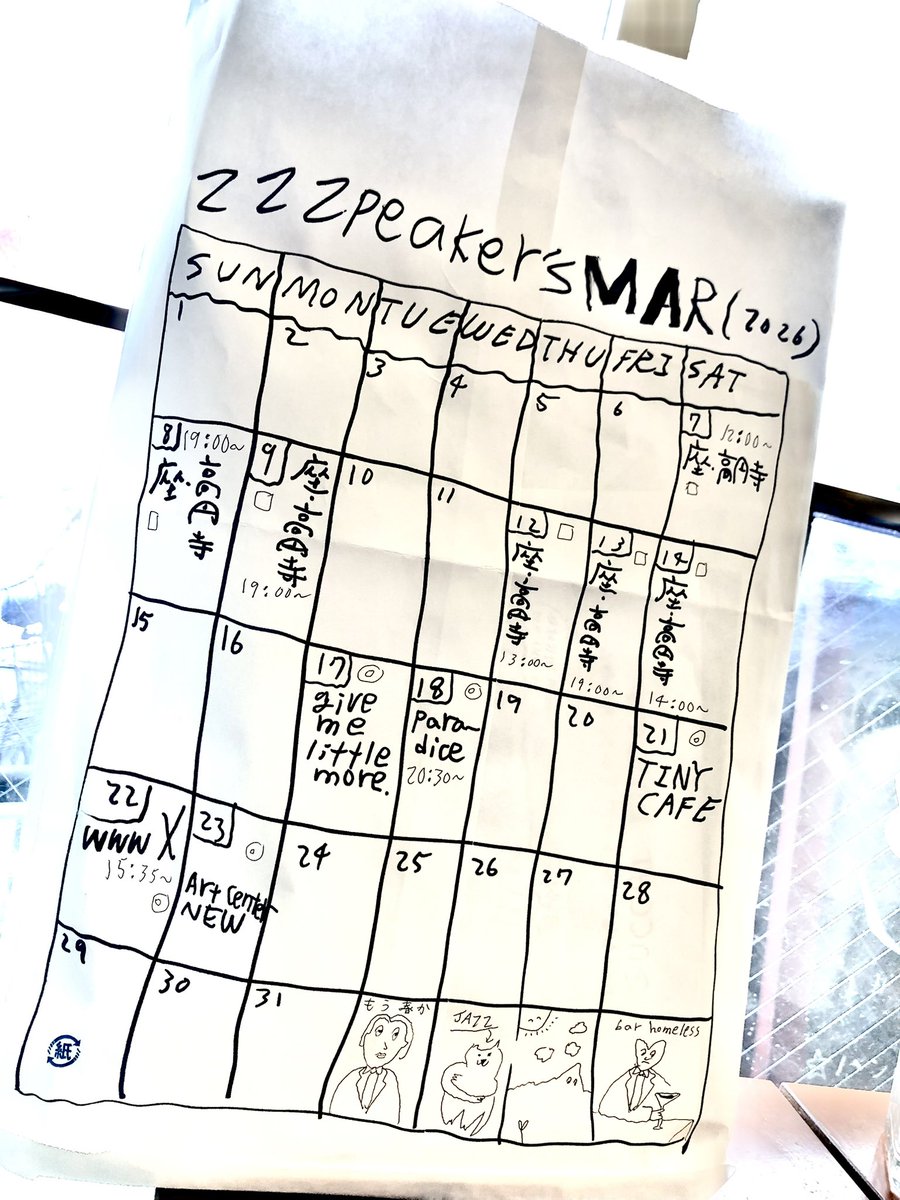 ZZZpeaker's MAR (2026)
SUN MON TUE WED THU FRI SAT
1
2
3
4
5
6
7 12:00~
座・高円寺
8 19:00~
座・高円寺
9
座・高円寺
19:00~
10
11
12
座・高円寺
13:00~
13
座・高円寺
19:00~
14
座・高円寺
14:00~
15
16
17
give
me
little
more.
18
Para-
dice
20:30~
19
20
21
TINY
CAFE
22
WWW X
15:35~
23
Art Center
NEW
24
25
26
27
28
29
紙
30
31
もう春か
JAZZ
bar homeless